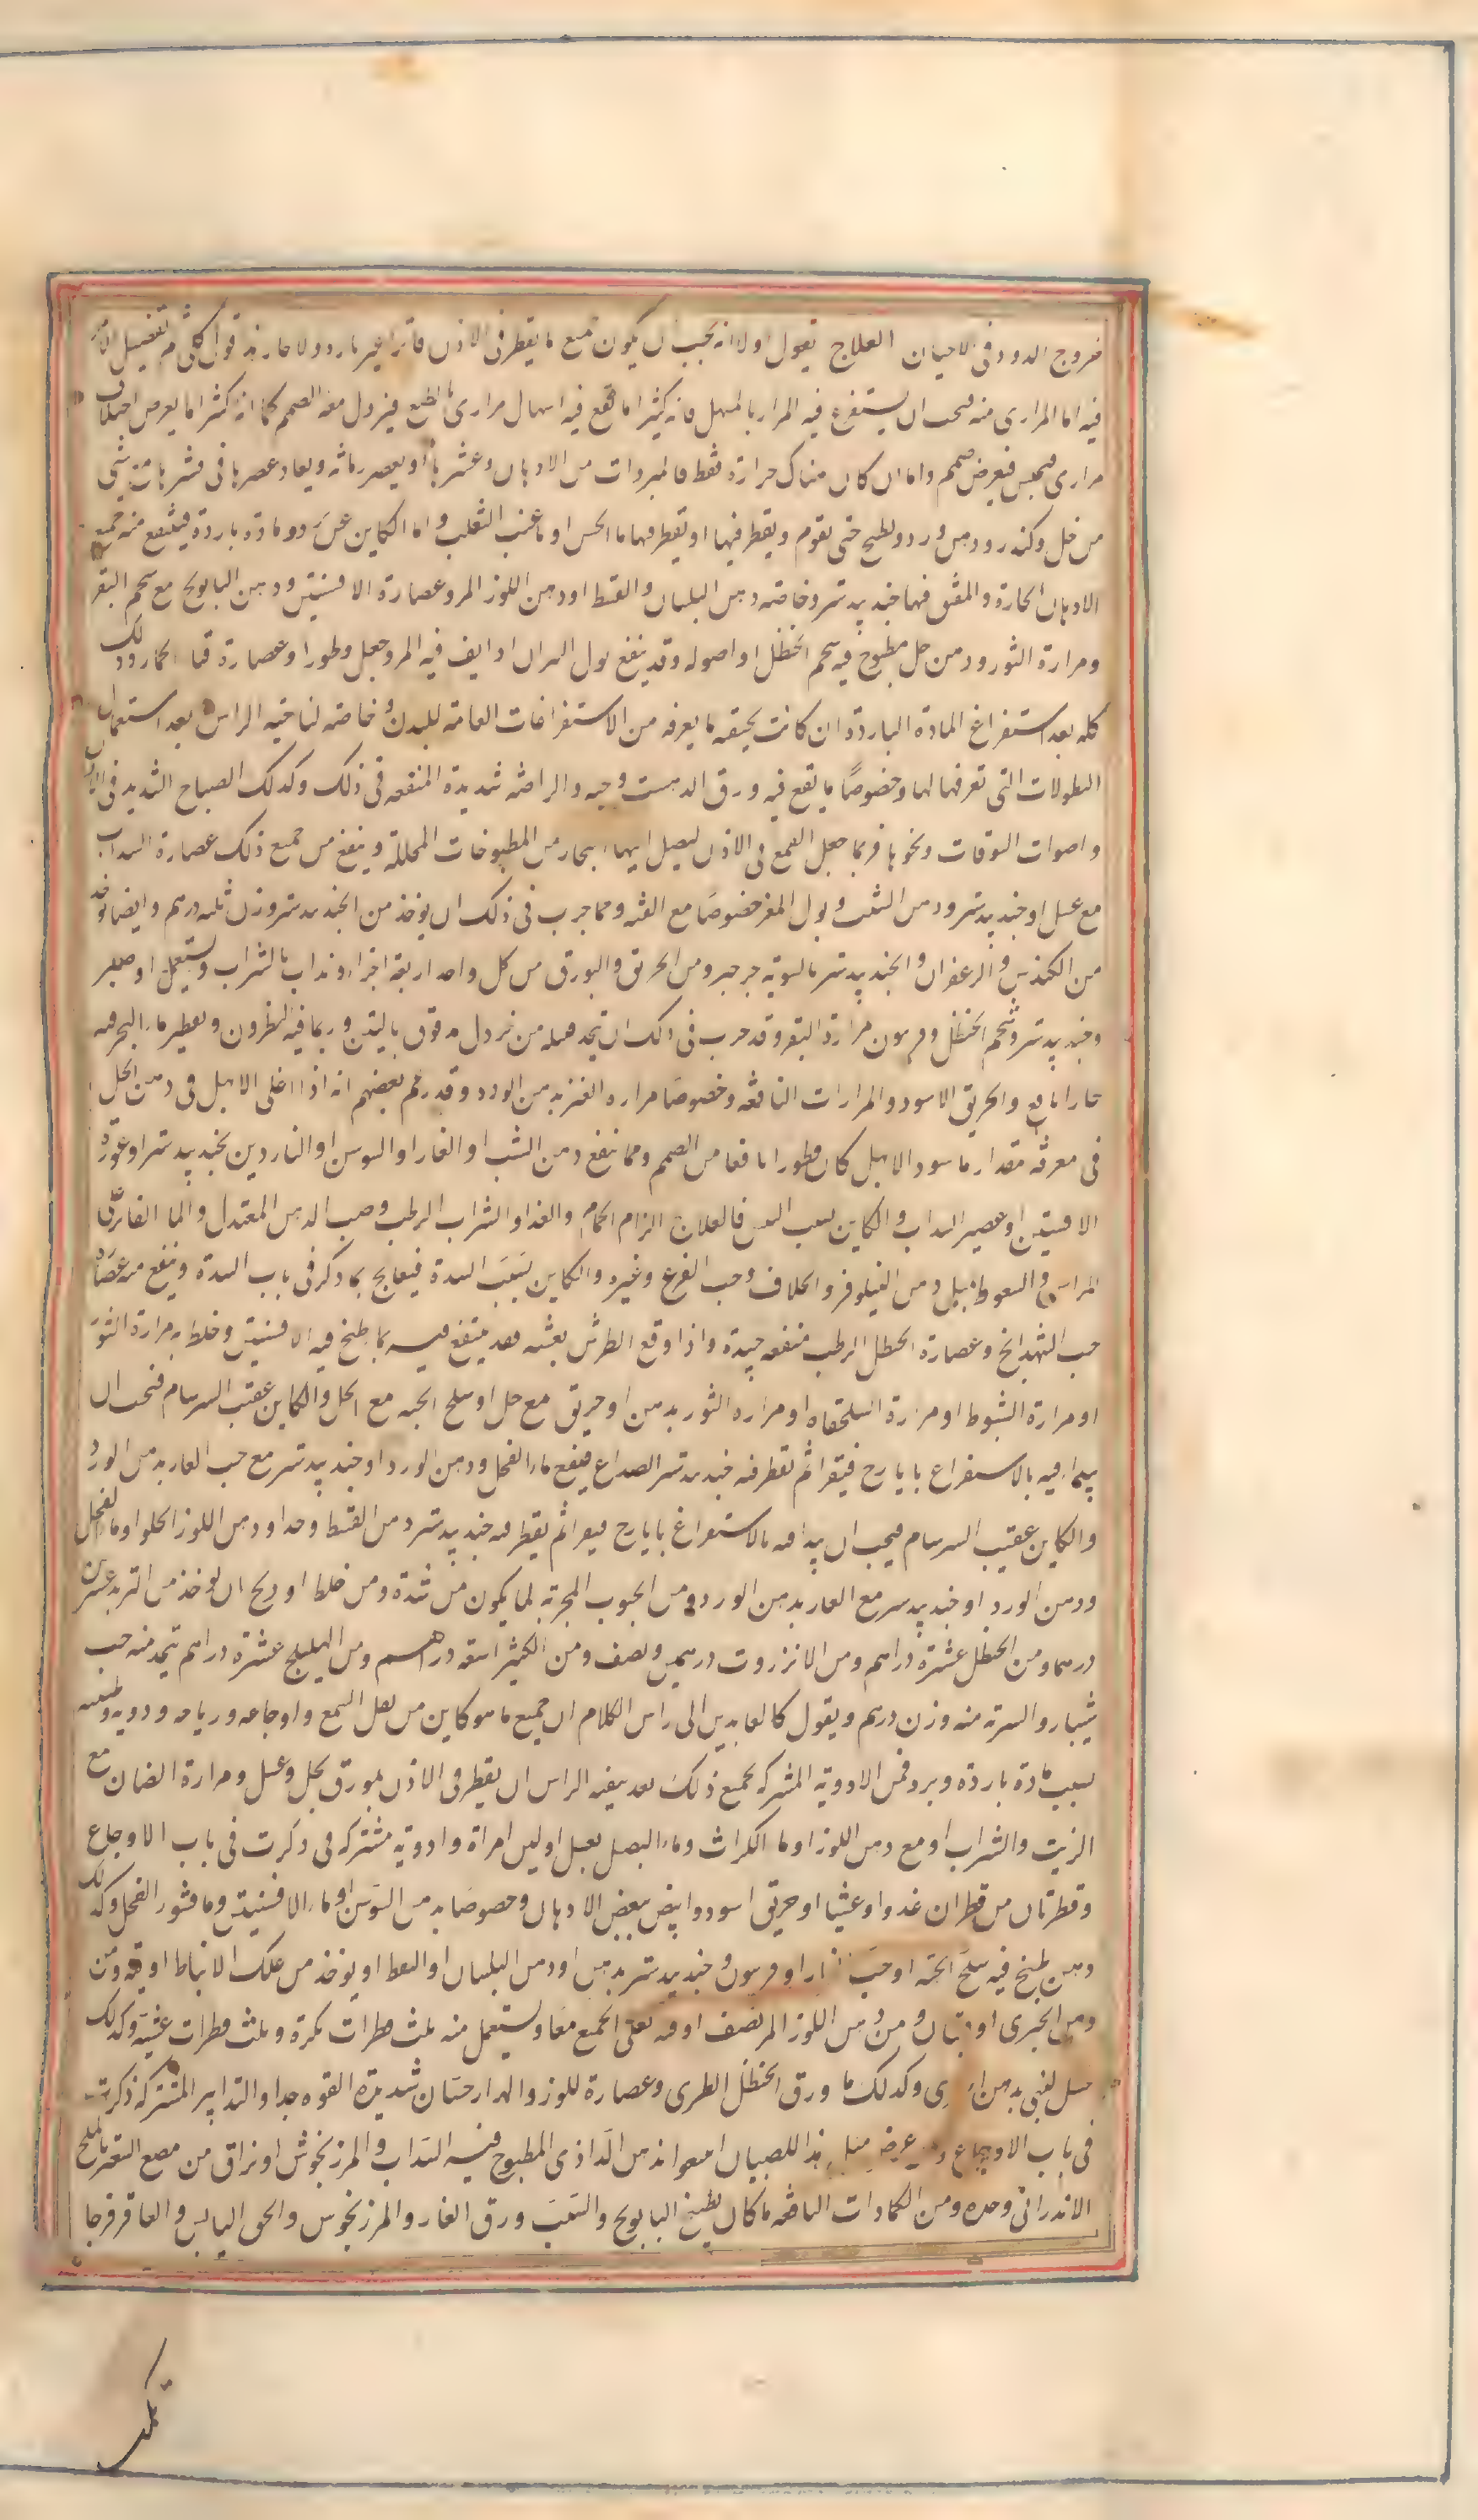 خروج الدود فى الاحيان العلاج نقول اولا انه يجب ان يكون جميع ما يقطر فى الاذن فاترا غير بارد ولا حار ثم نقول
فيه اما المرارى منه فيجب ان يستفرغ فيه المرار بالمسهل فانه كثيرا ما يقع فيه اسهال مرارى بالطبع فيزول معه الصمم كما انه كثيرا ما يعرض اختلاف
مرارى فيحبس فيعرض صمم واما ان كان هناك حرارة فقط فالمبردات من الادهان وعشرها او يعصر رمانه ويعاد عصرها فى قشرها مع شئ
من خل وكندر ودهن ورد ويطبخ حتى يقوم ويقطر فيها او يقطر فيها ماء الخس او ماء عنب الثعلب واما الكاين عن برد وماده باردة فينتفع منه جميع
الادهان الحارة والمفتق فيها جندبيدستر وخاصة دهن البلسان والقسط او دهن اللوز المر وعصارة الافسنتين ودهن البابونج مع شحم البقر
ومرارة الثور ودهن حل مطبوخ فيه شحم الحنظل او اصوله وقد ينفع بول الثيران اذا ديف فيه المر وجعل قطورا وعصارة قثاء الحمار وذلك
كله بعد استفراغ المادة الباردة ان كانت محتقنه بما يعرفه من الاستفراغات العامة للبدن وخاصه لناحية الراس بعد استعمال
النطولات التى تعرفها لها وخصوصًا ما يقع فيه ورق الدهمست وحبه والرياضه شديدة المنفعه فى ذلك وكذلك الصياح الشديد فى الاذن
واصوات البوقات ونحوها فربما جعل القمع فى الاذن ليصل اليها بخار من المطبوخات المحللة وينفع من جميع ذلك عصارة السداب
مع عسل او جندبيدستر ودهن الشبت وبول المعز خصوصًا مع القنه ومما جرب فى ذلك ان يوخذ من الجندبيدستر وزن ثلثه درهم وايضا يوخذ
من الكندس والزعفران والجندبيدستر بالسويه جزء ومن الخربق والبورق من كل واحد اربعة اجزاء ويذاب بالشراب ويستعمل او صبر
وجندبيدستر وشحم الحنظل وفربيون مرارة البقر وقد جرب فى ذلك ان يتخذ فتيله من خردل مدقوق بالتين وربما فيه النطرون ويقطر ماء البحر فيه
حارا نافع والخربق الاسود والمرارات النافعه وخصوصًا مراره العنز بدهن الورد وقد زعم بعضهم انه اذا اغلى الابهل فى دهن الحل
فى مغرفة مقدار ما يسود الابهل كان قطورا نافعا من الصمم ومما ينفع دهن الشبت او الغار او السوسن او الناردين بجندبيدستر او عصارة
الافسنتين او عصير السداب والكاين بسبب اليبس فالعلاج الزام الحمام والغذاء والشراب الرطب وصب الدهن المعتدل والماء الفاتر على
الراس والسعوط بمثل دهن النيلوفر والخلاف وحب القرع وغيره والكاين بسبب السدة فيعالج بما ذكر فى باب السدة وينفع منه عصاره
حب الشهدانج وعصارة الحنظل الرطب منفعه جيدة واذا وقع الطرش بغته فقد ينتفع فيه بما طبخ فيه الافسنتين وخلط به مرارة الثور
او مرارة الشبوط او مرارة السلحفاة او مراره الثور بدهن او خربق مع خل او سلخ الحيه مع الخل والكاين عقيب السرسام فيجب ان
يبدا فيه بالاستفراغ بايارج فيقرا ثم يقطر فيه جندبيدستر الصداع فينفع ماء الفجل ودهن الورد او جندبيدستر مع حب الغار بدهن الورد
والكاين عقيب السرسام فيجب ان يبدا فيه بالاستفراغ بايارج فيقرا ثم يقطر فيه جندبيدستر دهن القسط وحده او دهن اللوز الحلو او ماء الفجل
ودهن الورد او جندبيدستر مع الغار بدهن الورد ومن الحبوب المجربة لما يكون من شدة ومن خلط او ريح ان يوخذ من التربد عشرين
درهما ومن الحنظل عشرة دراهم ومن الانزروت درهمين ونصف ومن الكثيرا سته دراهم ومن الهليلج عشرة دراهم يتخذ منه حب
شبيار والشربة منه وزن درهم ونقول كالعايدين الى راس الكلام ان جميع ما هو كاين من ثقل السمع واوجاعه ورياحه ودويه وطنينه
بسبب مادة باردة وبرد فمن الادوية المشتركه لجميع ذلك بعد تنقيه الراس ان يقطر فى الاذن بورق بخل وعسل ومرارة الضان مع
الزيت والشراب او مع دهن اللوز او ماء الكراث وماء البصل بعسل او لبن امراة وادويه مشتركه ذكرت فى باب الاوجاع
وقطرتان من قطران غدوا وعشيا او خربق اسود وابيض ببعض الادهان وخصوصًا بدهن السوسن او ماء الافسنتين وماء قشور الفجل وكذلك
دهن طبخ فيه سلخ الحيه او حب الغار او فربيون وجندبيدستر بدهن او دهن البلسان او النفط او يوخذ من علك الانباط اوقيه ومن
دهن الخيرى اوقيتان ومن دهن اللوز المر نصف اوقيه يغلى الجميع معا ويستعمل منه ثلث قطرات بكرة وثلث قطرات عشية وكذلك
وكذلك ماء ورق الحنظل الطرى وعصارة اللوز شديدة القوه جدا والتدابير المشتركه ذكرت
فى باب الاوجاع للصبيان الداذى المطبوخ فيه السداب والمرزنجوش او بزاق من مضغ السعتر بالملح
الاندرانى وحده ومن الكمادات النافعه ما كان بطبيخ البابونج والشبث ورق الغار والمرزنجوش والحبق اليابس والعاقرقرحا
تلك